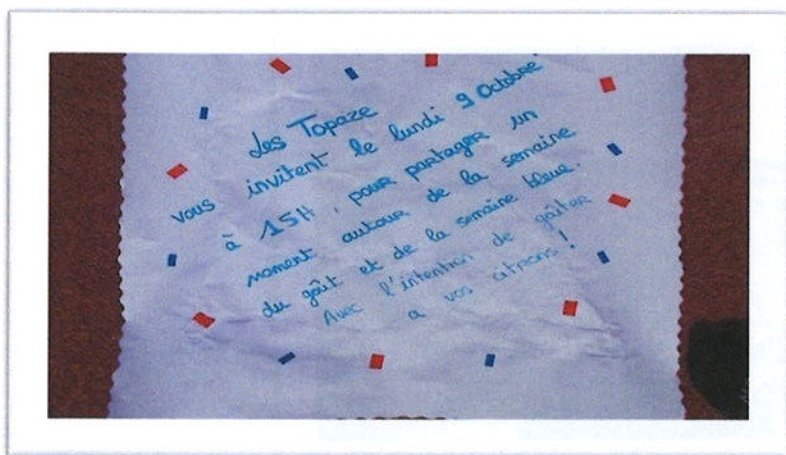 Les Topaze
vous invitent le lundi 9 Octobre
à 15H, pour partager un
moment autour de la semaine
du goût et de la semaine bleue.
Avec l'intention de goûter
a vos citrons !